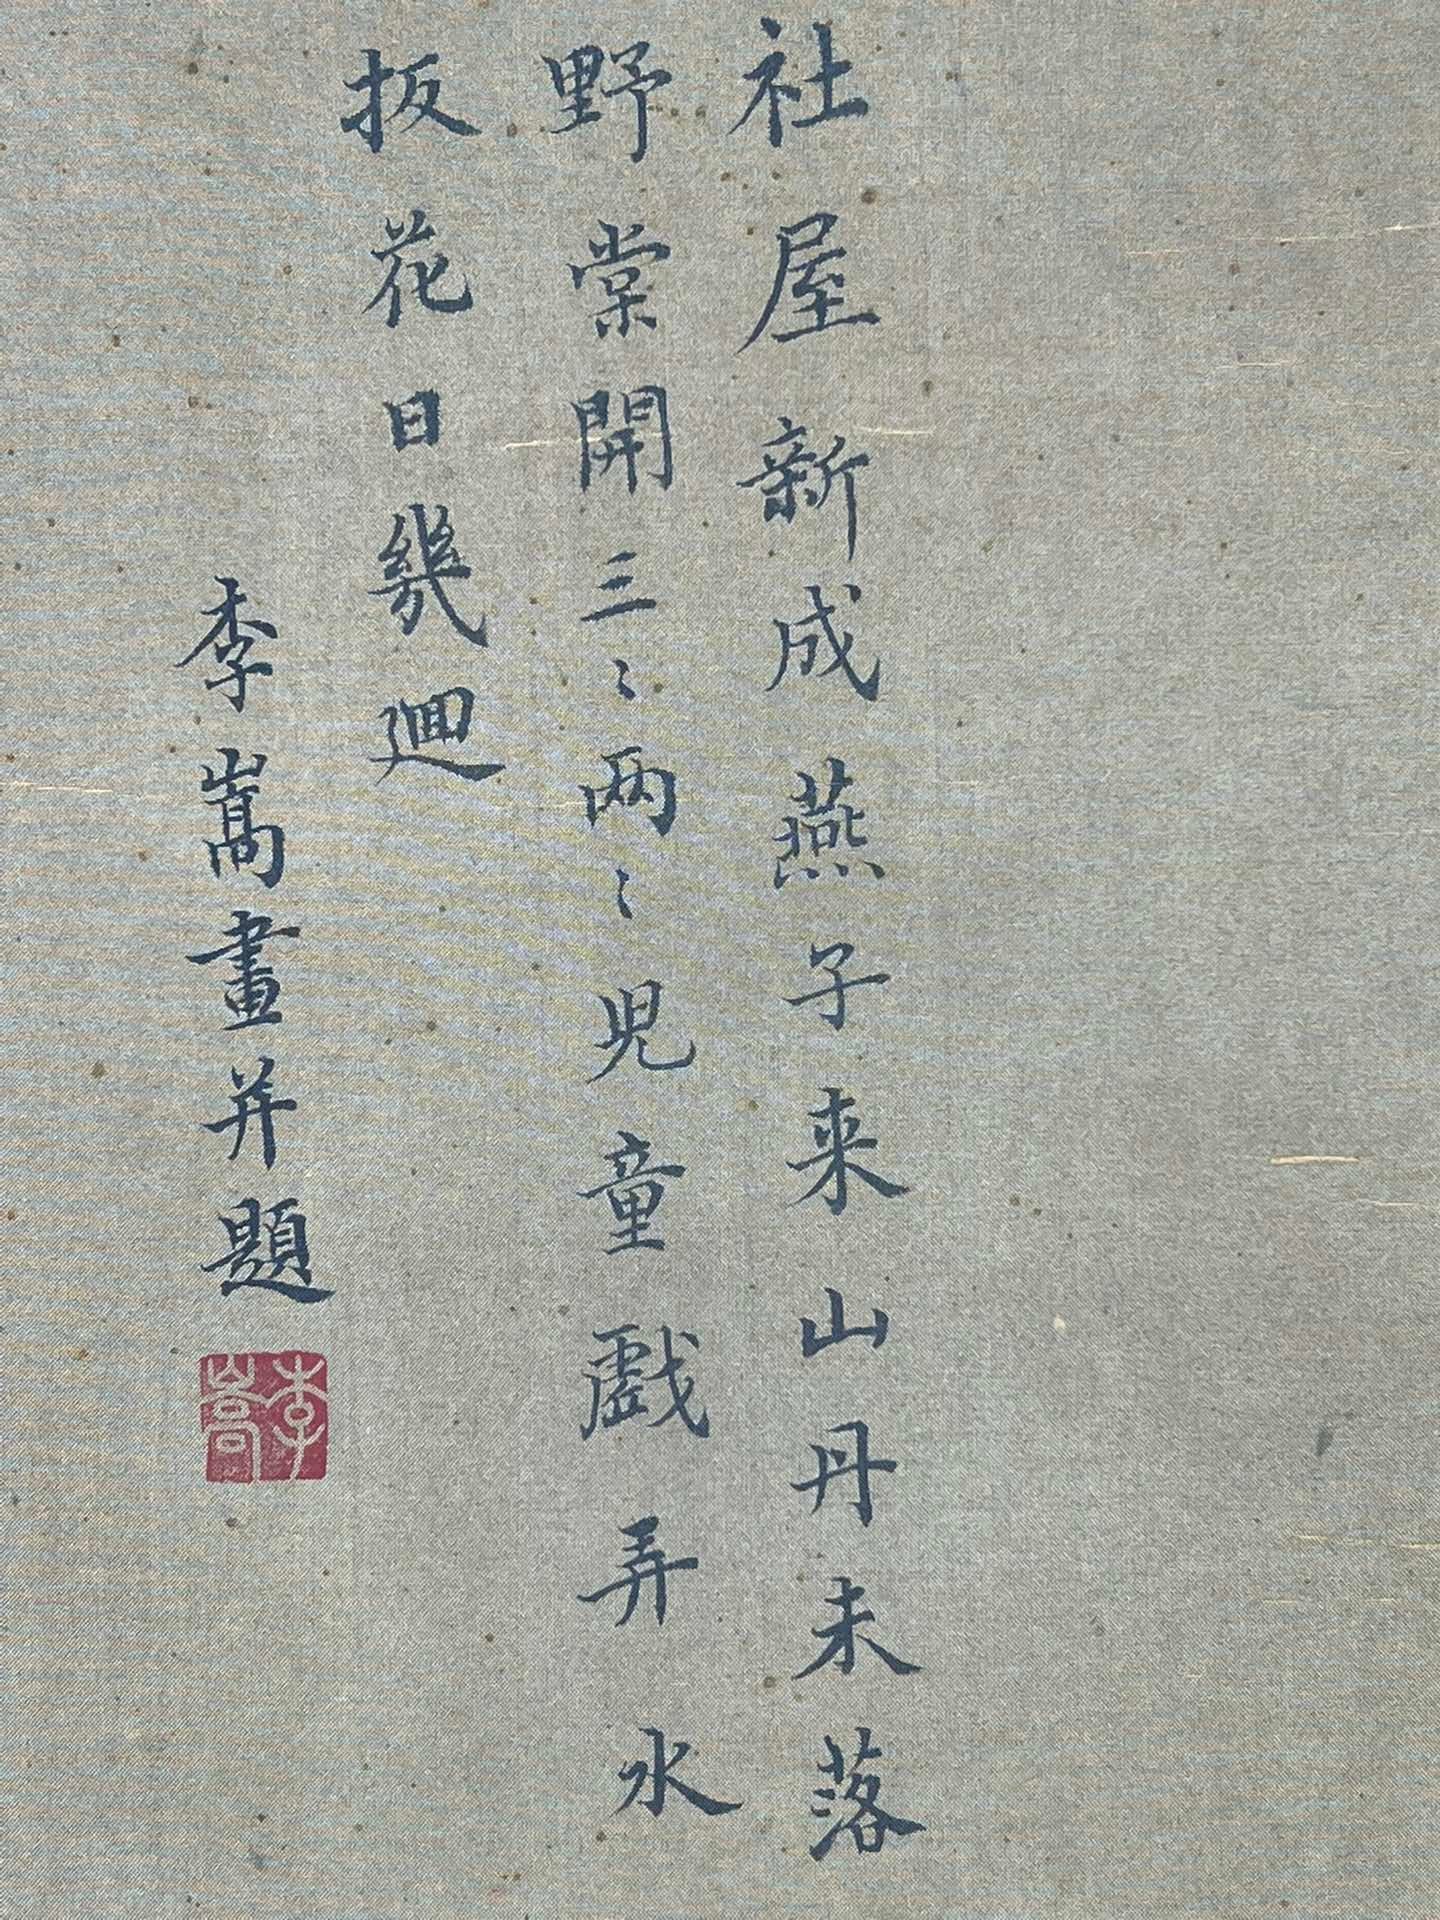 社屋新成燕子来山丹未落
野棠開三〻两〻児童戯弄水
扳花日幾廻
李嵩畫并題
李嵩